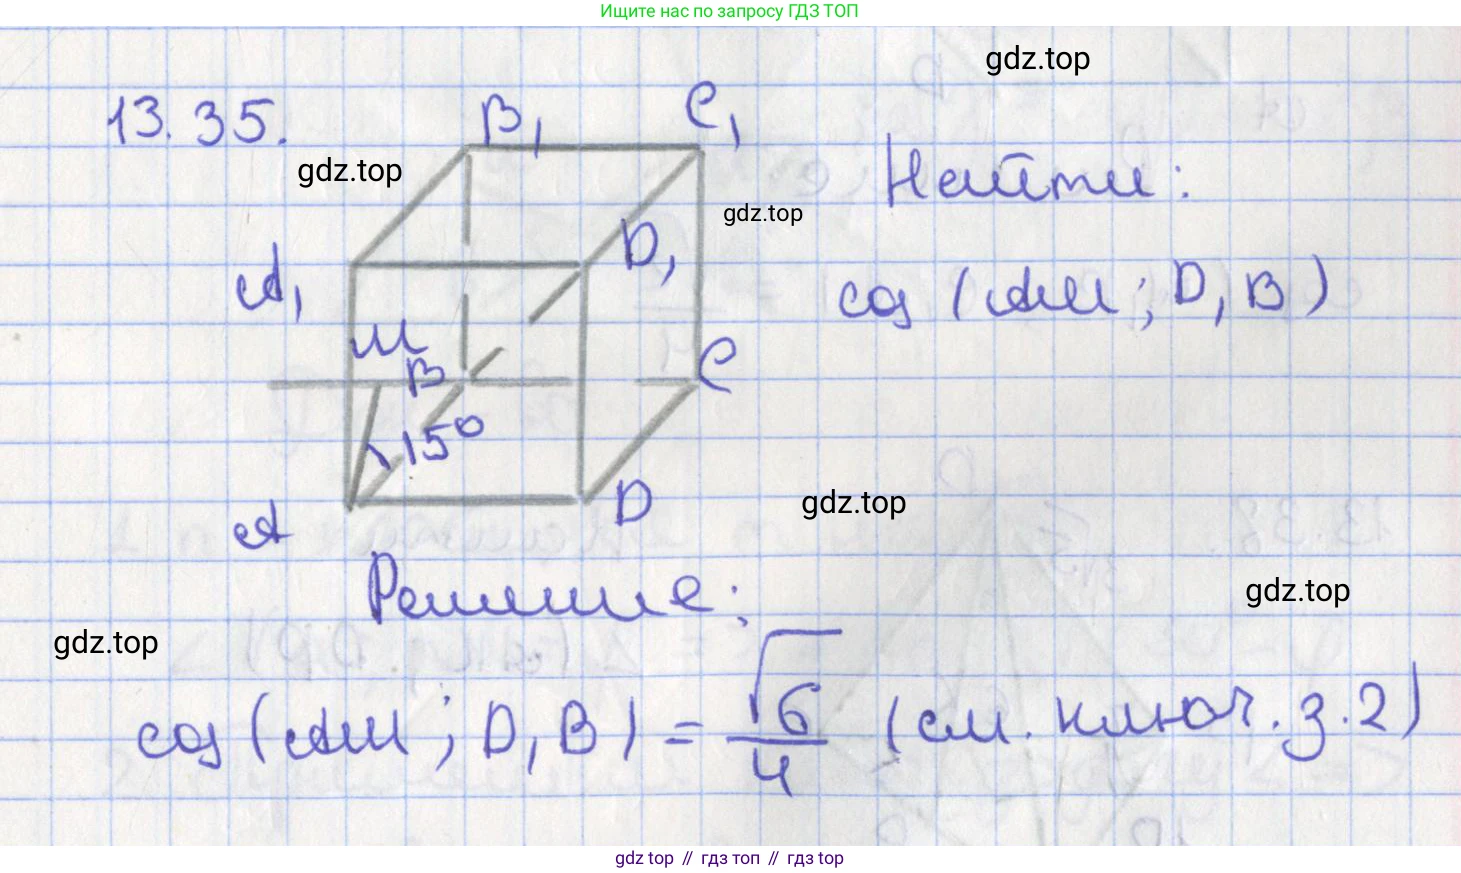 Ищите нас по запросу ГДЗ ТОП
gdz.top
13.35.
B₁ C₁
gdz.top
Найти:
gdz.top
D₁
A₁
cos (AM; D₁B)
M
B C
15°
A D
gdz.top
Решение:
gdz.top
gdz.top
cos (AM; D₁B) = √6/4 (см. ключ. з. 2)
gdz top // гдз топ // гдз top